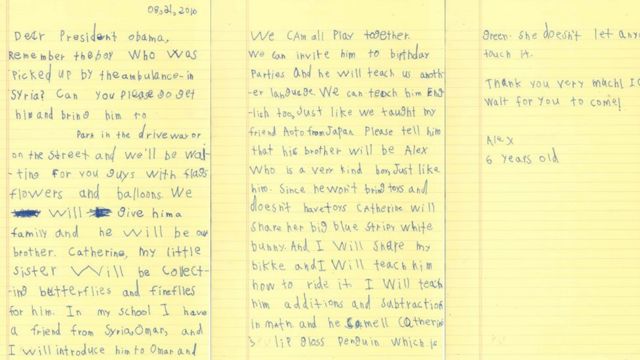 08.21, 2010
Dear President obama,
Remember the boy who was
picked up by the ambulance in
Syria? Can you please go get
him and bring him to
Park in the driveway or
on the street and we'll be wai-
ting for you guys with flags
flowers and balloons. We
will give him a
family and he will be our
brother. Catherine, my little
sister will be collect-
ing butterflies and fireflies
for him. In my school I have
a friend from Syria, Omar, and
I will introduce him to Omar and
We can all play together.
We can invite him to birthday
parties and he will teach us anoth-
er language. We can teach him eng-
lish too, just like we taught my
friend Aoto from Japan. Please tell him
that his brother will be Alex
who is a very kind boy, just like
him. Since he won't bring toys and
doesn't have toys Catherine will
share her big blue stripy white
bunny. And I will share my
bikke and I will teach him
how to ride it. I will teach
him additions and subtractions
in math and he smell Catherine
's lip gloss penguin which is
green. she doesn't let any
touch it.
Thank you very much! I c
wait for you to come!
Alex
6 years old